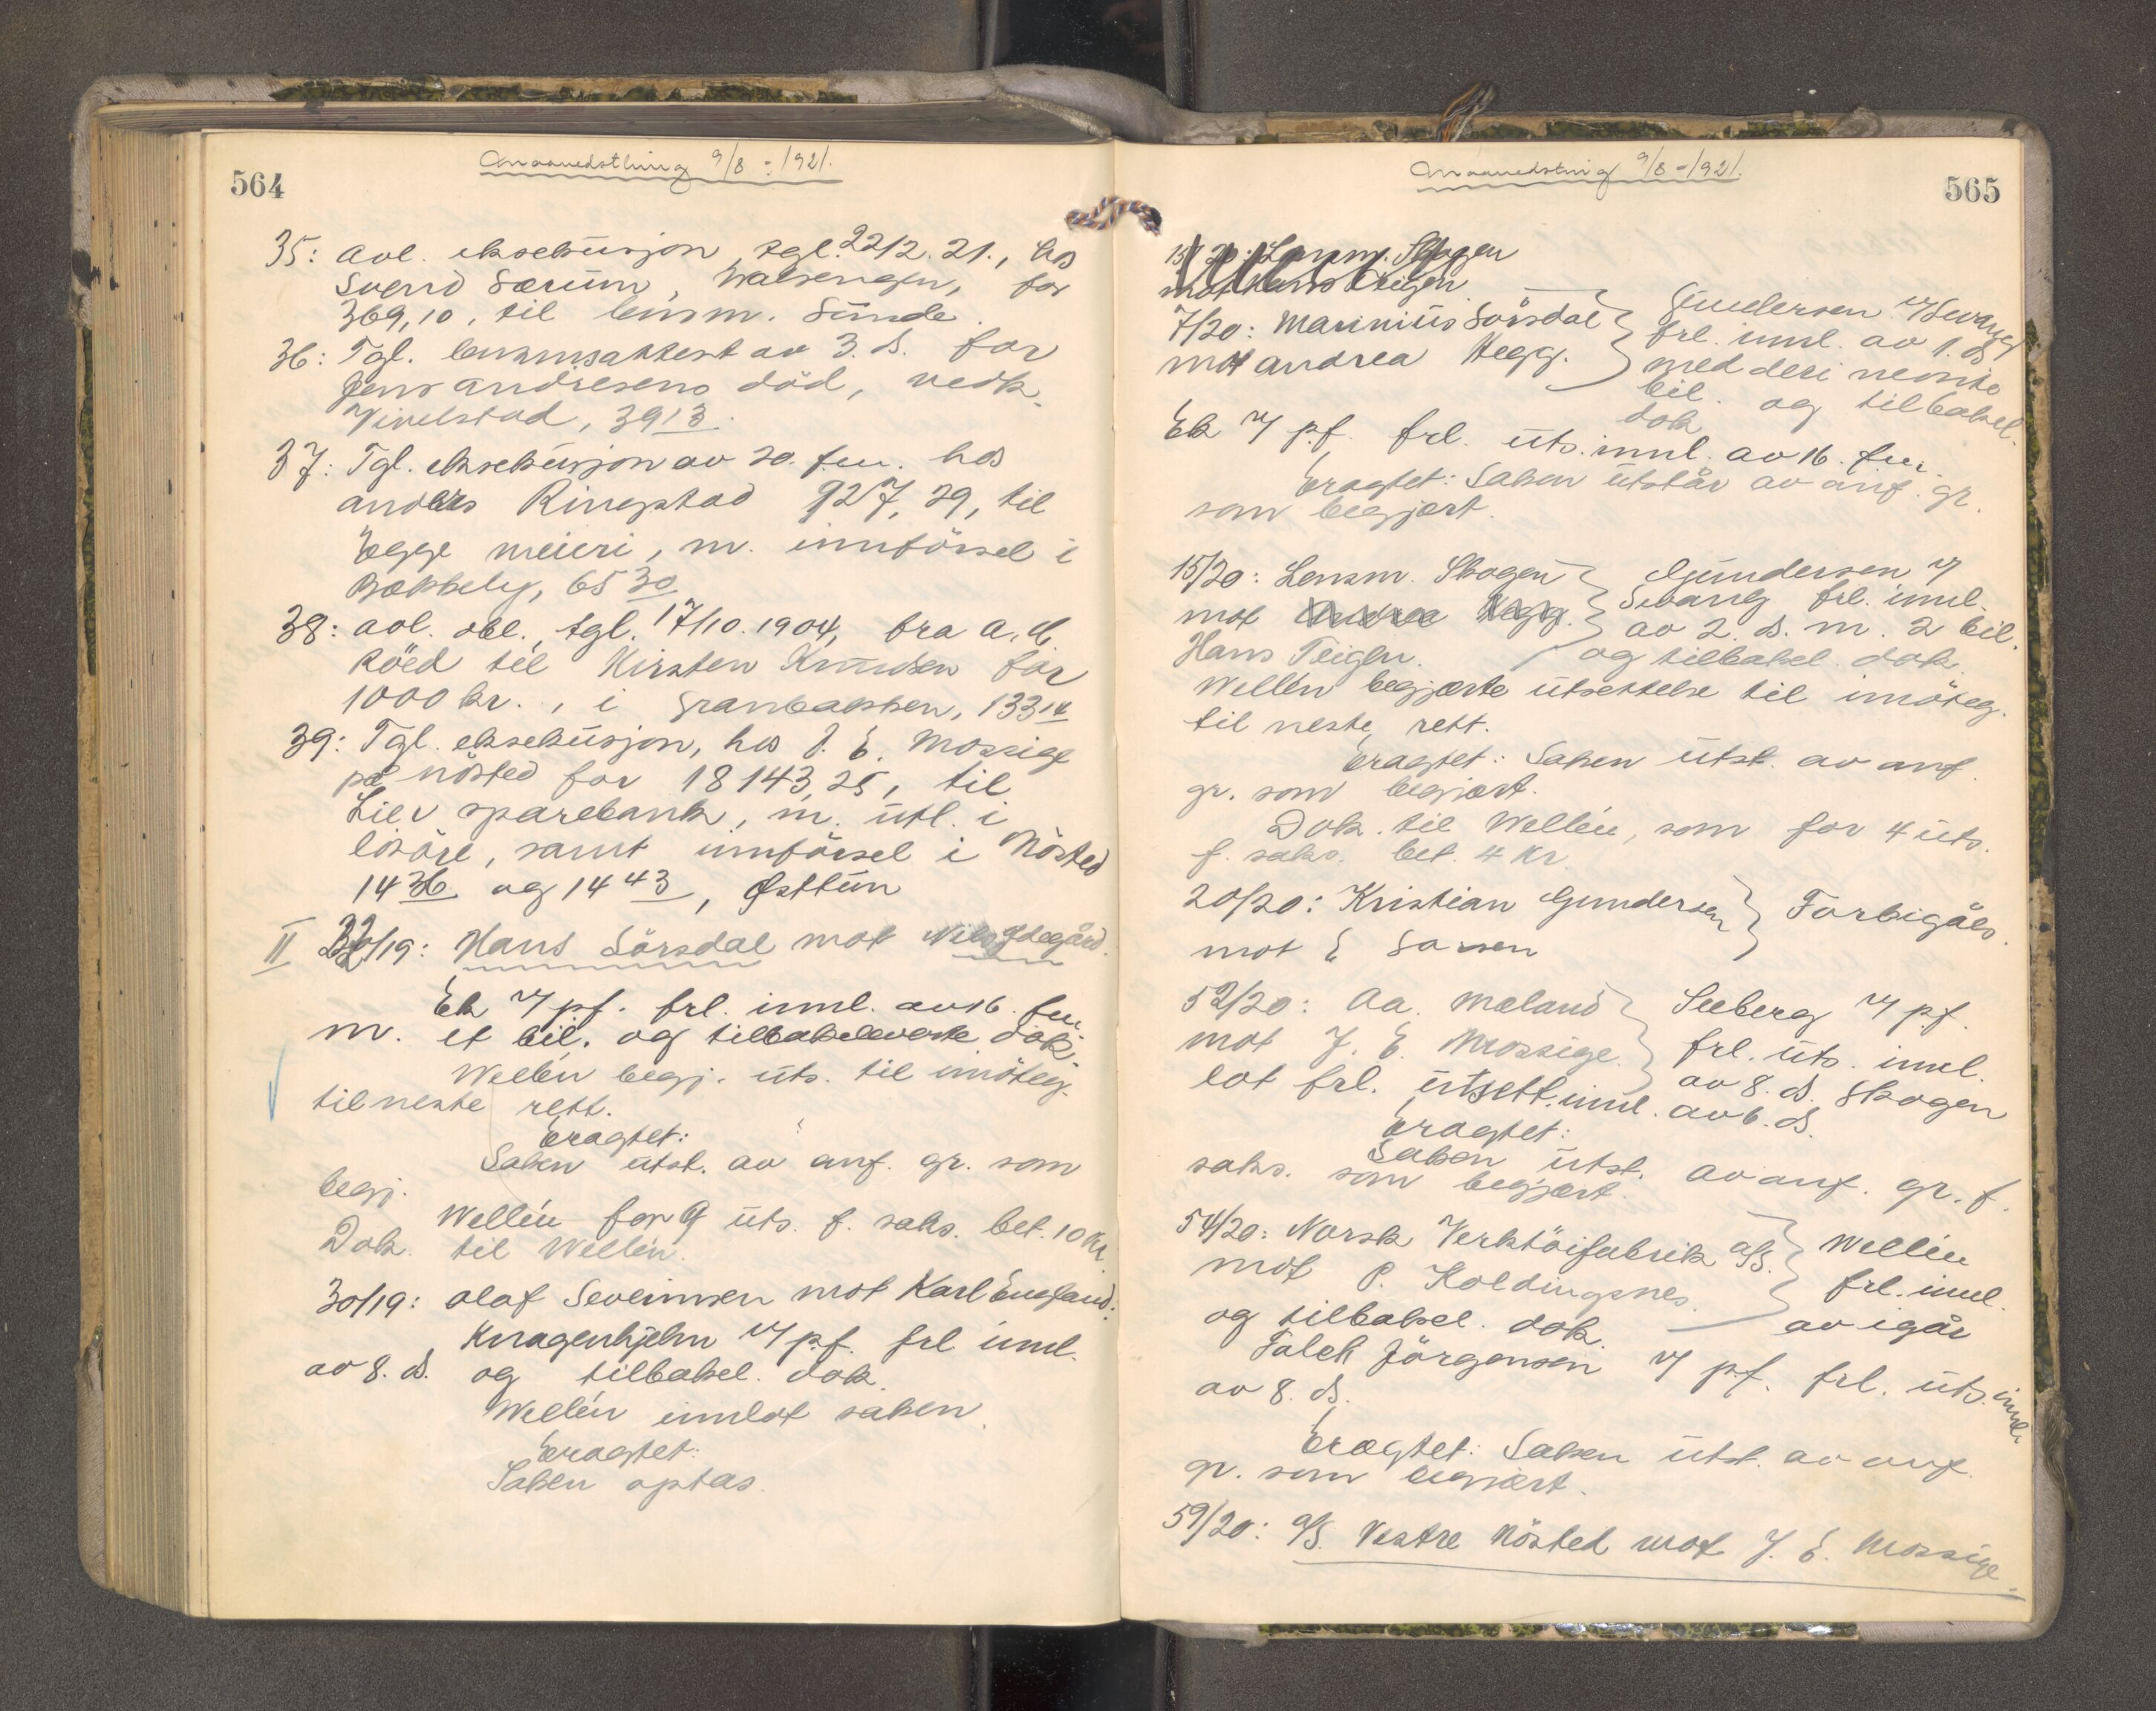 564
Maanedsthing 9/8 - 1921.
35: Avl. eksekusjon, tgl. 22/2. 21., hos
Svend Særum, Walsengen, for
369,10, til lensm. Sunde.
36: Tgl. lensmsattest av 3. ds. for
Jens Andresens död, vedk.
Vivelstad, 39 13.
37: Tgl. eksekusjon av 20. f.m. hos
Anders Ringstad 927,29, til
Egge meieri, m. innförsel i
65 30
38: Avl. obl. tgl. 17/10. 1904, fra A. H.
Röed til Kirsten Knudsen for
1000 kr., i Granbakken, 133 14
39: Tgl. eksekusjon, hos J. E. Mossige
på Nösted for 18143,25, til
Lier sparebank, m. utl. i
lösöre, samt innförsel i Nösted
14 36 og 14 43, Østtun
II 22/19: Hans Sörsdal mot Nils Ødegård.
Ek r/ pf. frl. innl. av 16. f.m.
m. et bil. og tilbakeleverte dok.
Wellén begj. uts. til imöteg.
til neste rett.
Eragtet:
Saken utst. av anf. gr. som
begj.
Wellén for 9 uts. f. saks. bet. 10 kr.
Dok. til Wellén.
30/19: Olaf Severinsen mot Karl Enesland.
Kragenhjelm r/ pf. frl innl.
av 8. ds. og tilbakel. dok.
Wellén innlot saken.
Eragtet:
Saken optas.
565
Maanedsting 9/8 - 1921.
15/20: Lensm. Skogen
mot Hans Teigen
7/20: Marinius Sörsdal
mot Andrea Hegg.
Gundersen r/ Svang
frl. innl. av 1. ds
med deri nevnte
bil. og tilbakel.
dok
Ek r/ p.f. frl. uts. innl. av 16. f.m.
Eragtet: Saken utstår av anf. gr.
som begjært.
15/20: Lensm. Skogen
mot Andrea Hegg.
Hans Teigen.
Gundersen r/
Svang frl. innl.
av 2. ds. m. 2 bil.
og tilbakel. dok.
Wellén begjærte utsettelse til imöteg.
til neste rett.
Eragtet: Saken utst. av anf.
gr. som begjært.
Dok. til Wellén, som for 4 uts.
f. saks. bet. 4 kr.
20/20: Kristian Gundersen
mot E Larsen
Forbigåes.
52/20: Aa. Mæland
mot J. E. Mossige.
Seeberg r/ pf.
frl. uts. innl.
av 8. ds. Skogen
lot frl. utsett. innl. av 6. ds.
Eragtet:
Saken utst. av anf. gr. f.
saks. som begjært.
54/20: Norsk Verktöifabrik A/S.
mot P. Koldingsnes.
Wellén
frl. innl.
av igår
og tilbakel. dok.
Falck Jörgensen r/ pf. frl. uts. innl.
av 8. ds.
Eragtet: Saken utst. av anf.
gr. som begjært.
59/20: A/S. Vestre Nösted mot J. E. Mossige.